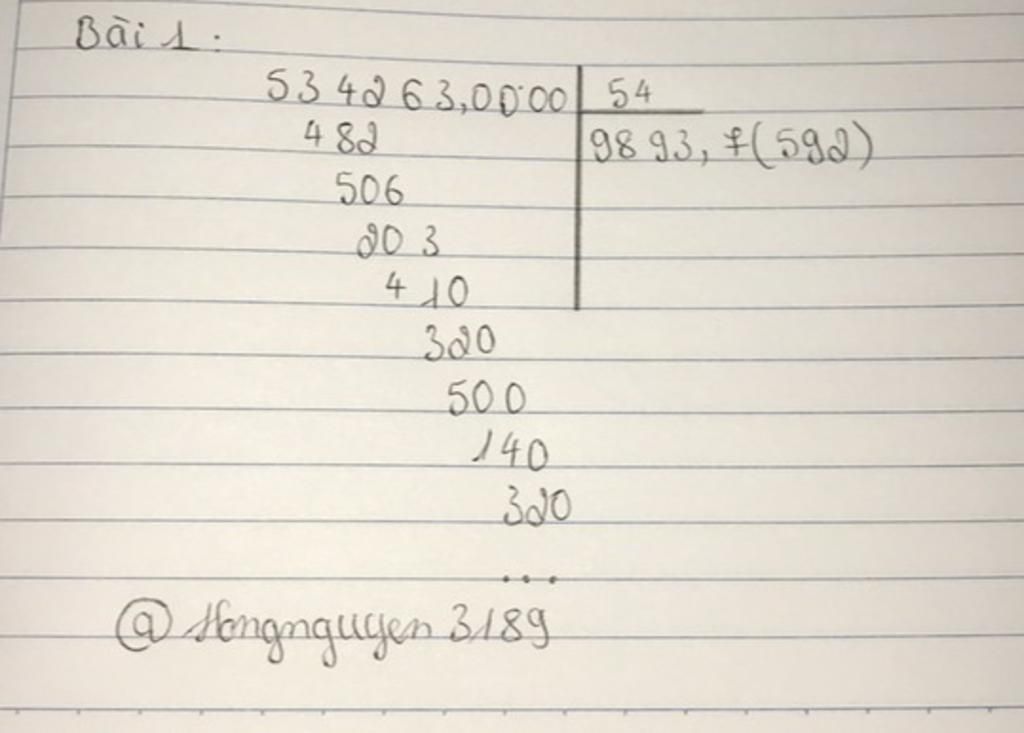 Bài 1:
534263,0000 54
482 9893,7(592)
506
203
410
320
500
140
320
...
@Hongnguyen3189